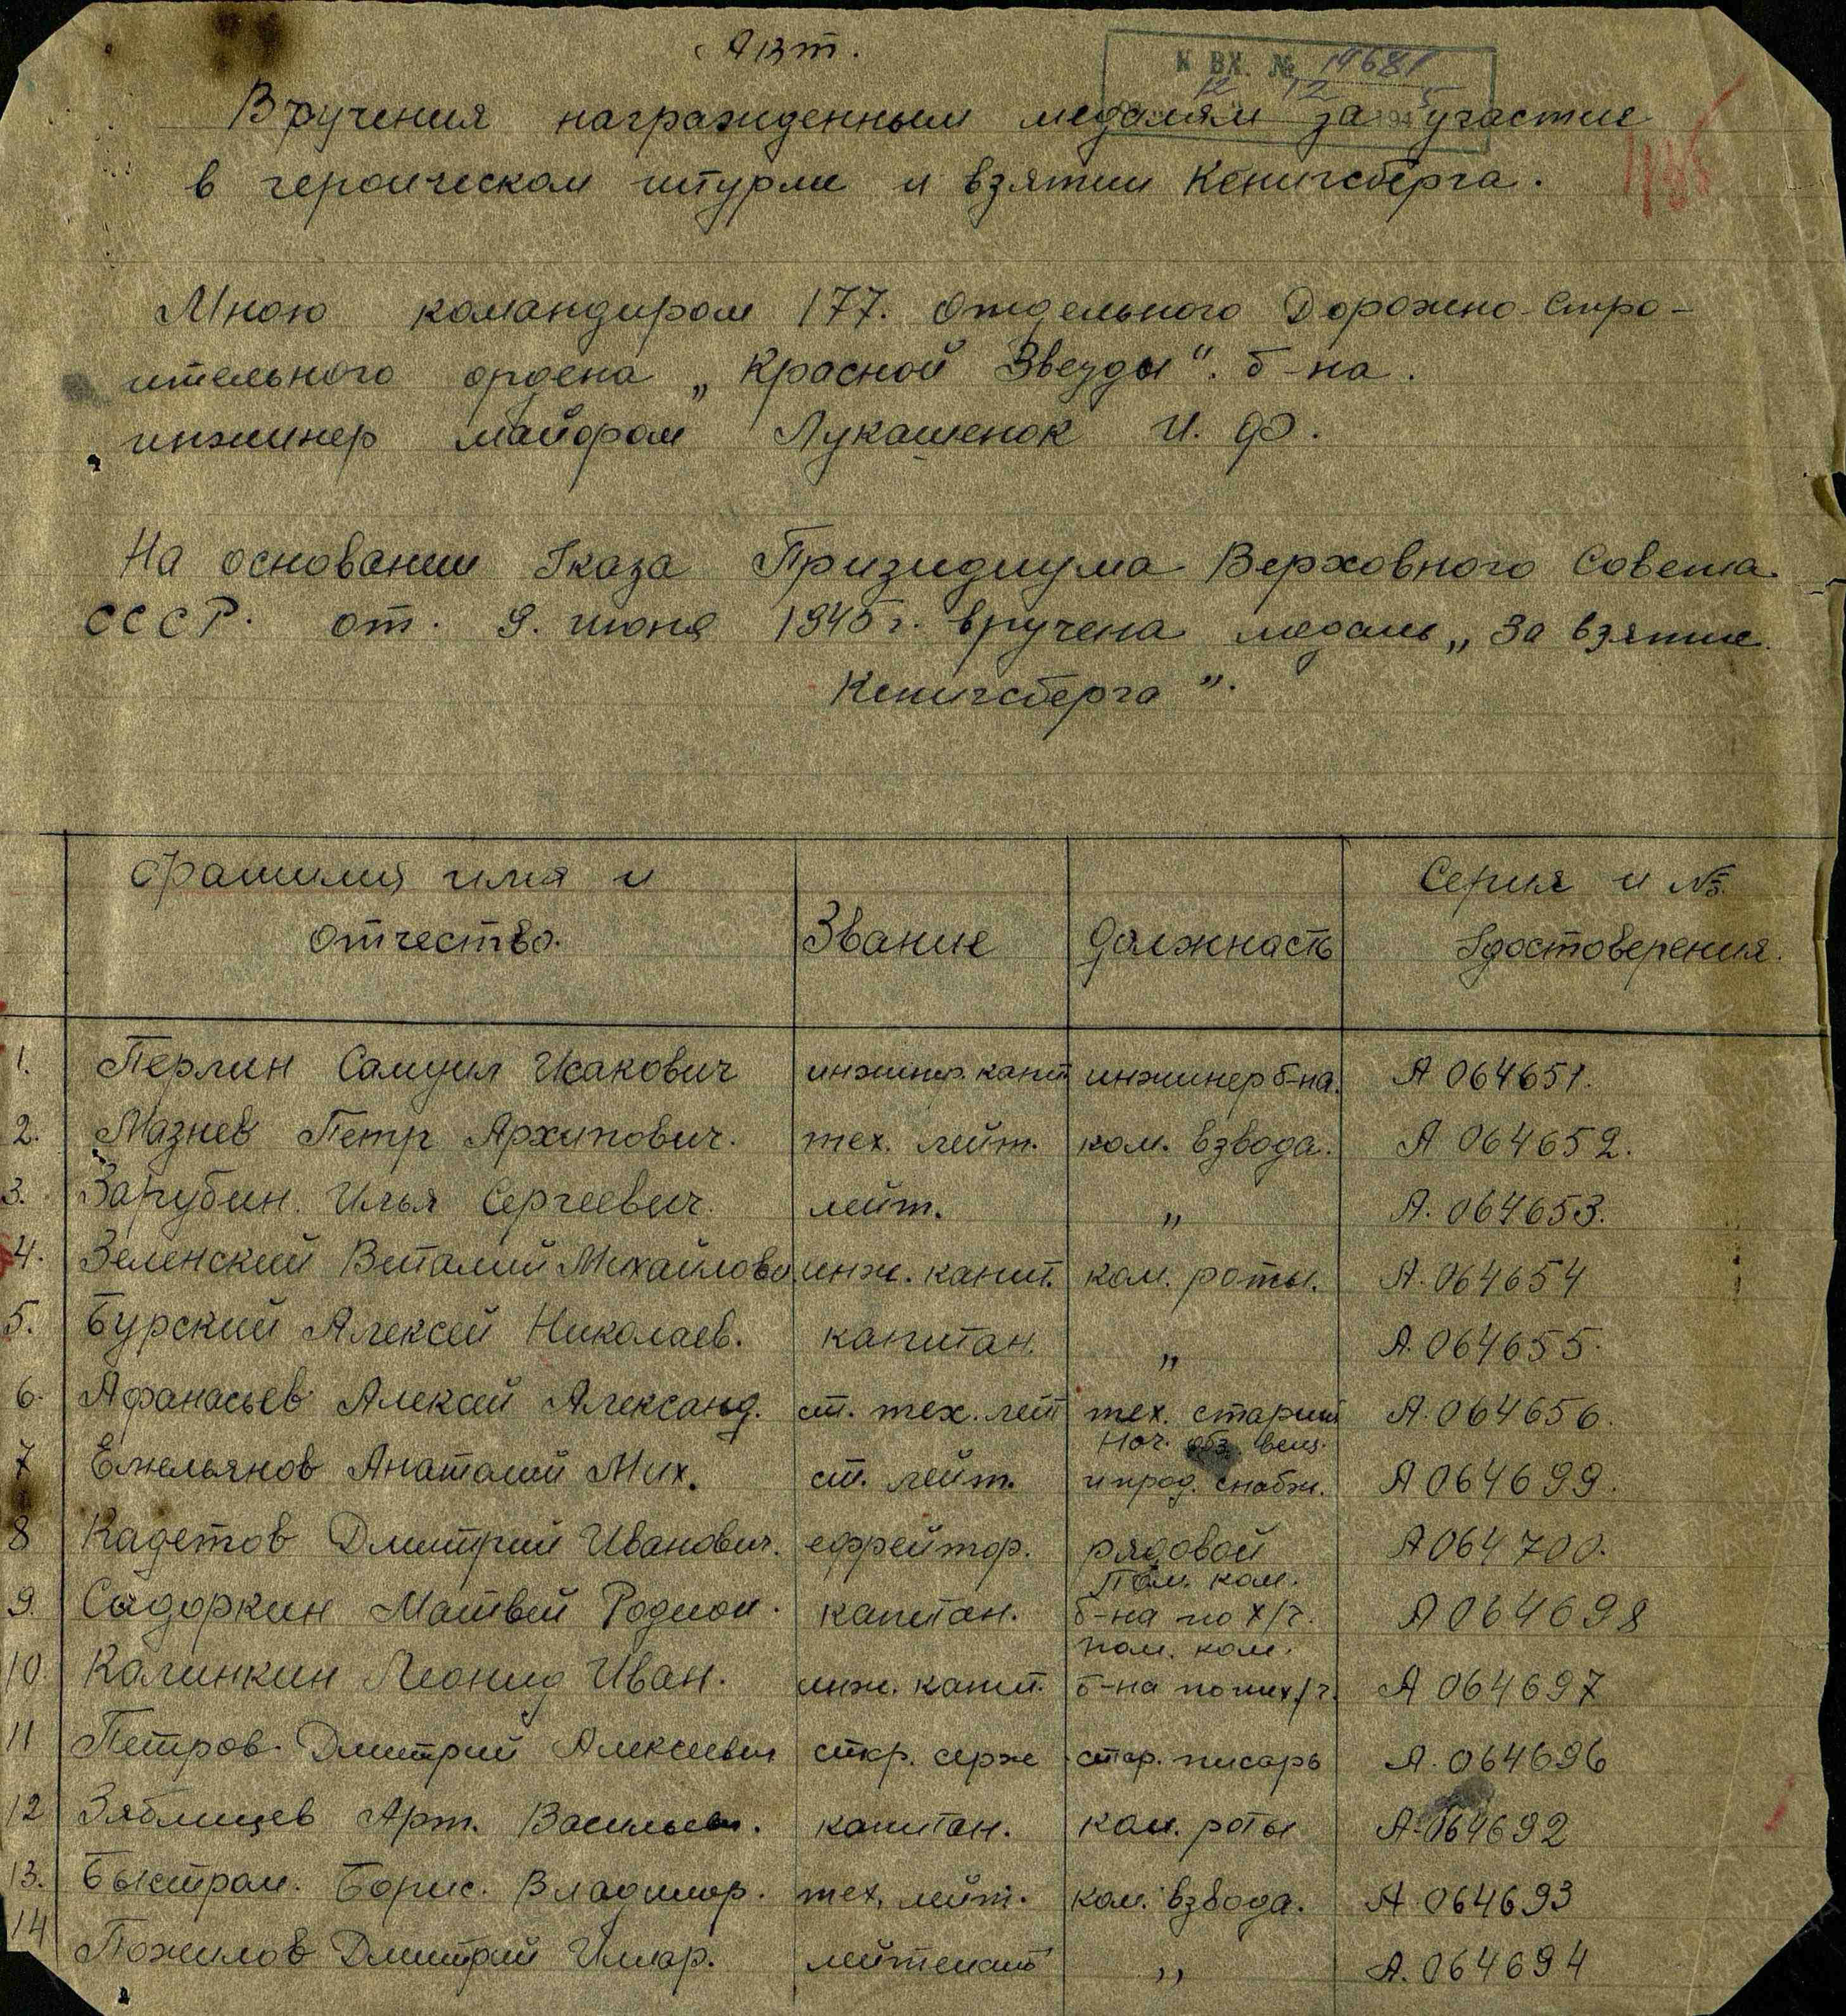 Акт.
К ВХ. № 19681
12 12 1945
Вручения награжденным медалям за участие
в героическом штурме и взятии Кенигсберга.
Мною командиром 177. Отдельного Дорожно-Стро-
ительного ордена „Красной Звезды". б-на.
инжинер майором Лукашенок И. Ф.
На основании Указа Призидиума Верховного Совета
СССР. от. 9. июня 1945 г. вручена медаль „За взятие
Кенигсберга".
Фамилия имя и отчество. Звание Должность Серия и № Удостоверения.
1. Перлин Самуил Исакович инжинер. капит инжинер б-на. А 064651.
2. Мазнев Петр Архипович. тех. лейт. ком. взвода. А 064652.
3. Зарубин. Илья Сергеевич. лейт. „ А. 064653.
4. Зеленский Виталий Михайлови инж. капит. ком. роты. А. 064654
5. Бурский Алексей Николаев. капитан. „ А. 064655.
6. Афанасьев Алексей Александ. ст. тех. лейт тех. старший А. 064656.
7 Емельянов Анатолий Мих. ст. лейт. Нач. обз. вещ. и прод. снабж. А 064699.
8 Кадетов Дмитрий Иванович. ефрейтор. рядовой А 064700.
9. Садоркин Матвей Родион. капитан. Пом. ком. б-на по х/ч. А 064698
10. Калинкин Леонид Иван. инж. капит. пом. ком. б-на по тех/ч. А 064697
11 Петров. Дмитрий Алексеевич стар. серж стар. писарь А. 064696
12 Зяблицев Арт. Васильев. капитан. ком. роты А. 064692
13. Быстром. Борис. Владимир. тех. лейт. ком. взвода. А 064693
14 Пожилов Дмитрий Иллар. лейтенант „ А. 064694